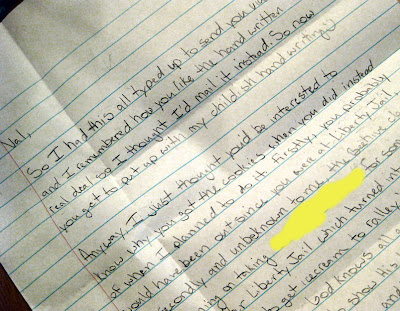 Nal,
So I had this all typed up to send you via
and I remembered how you like the hand written
real deal so I thought I'd mail it instead. So now
you get to put up with my childish hand writing
Anyway, I just thought you'd be interested to
know why you got the cookies when you did instead
of when I planned to do it. Firstly, you probably
would have been out since you were at Liberty Jail,
secondly and unbeknown to me, the
on taking for some
Liberty Jail which turned int
to get icecream to rally
God knows all
to show this